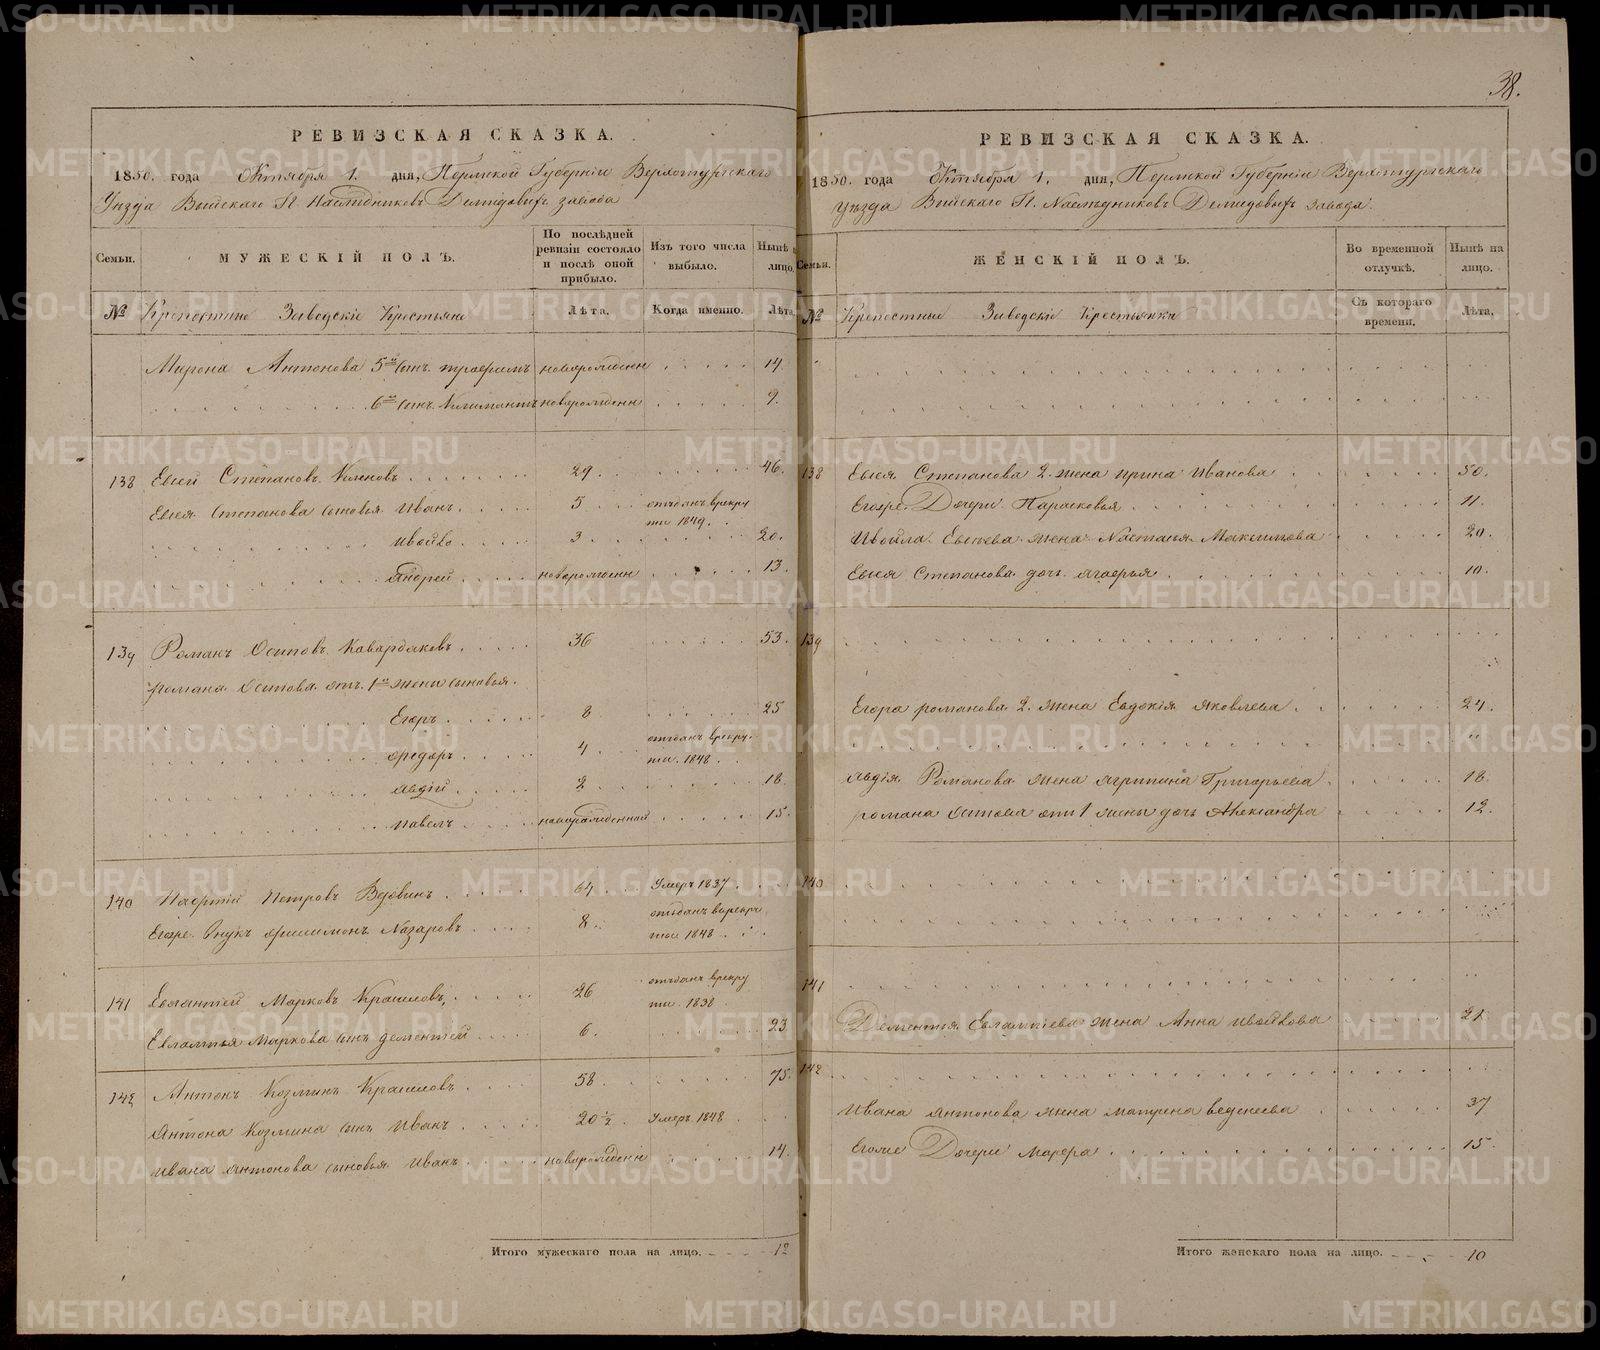 38.
РЕВИЗСКАЯ СКАЗКА.
1850. года Октября 1. дня, Пермской Губерніи Верхотурскаго
Уѣзда Выйскаго Г. Наслѣдниковъ Демидовыхъ завода
Семьи.
МУЖЕСКІЙ ПОЛЪ.
По послѣдней ревизіи состояло и послѣ оной прибыло.
Изъ того числа выбыло.
Нынѣ на лицо.
№ Крепостные Заводскіе Крестьяне
Лѣта.
Когда именно.
Лѣта.
Мирона Антонова 5й сынъ Трафимъ новорожденн 14.
6й сынъ Климантъ новорожденн 9.
138 Евсей Степановъ 29 46.
Евсея Степанова сыновья Иванъ 5 отъданъ врекру
ты 1849.
Ивойло 3 20.
Андрей новорожденн 13.
139 Романъ Осиповъ Кавардаковъ 36 53.
романа Осипова отъ 1й жены сыновья.
Егоръ 8 25
Федоръ 4 отъданъ врекру
ты. 1848.
Авдій 2 18
Павелъ новорожденной 15.
140 Петровъ Вдовинъ 64 Умеръ 1837
Егоже Внукъ Филимонъ Назаровъ 8 отъданъ врекру
ты 1848
141 Евлантей Марковъ Крашловъ 26 отъданъ врекру
ты. 1838
Евлантья Маркова сынъ дементей 6. 23
142 Антонъ Козминъ Крашловъ 58 75.
Антона Козмина сынъ Иванъ 20 ½ Умеръ 1848
Ивана Антонова сыновья Иванъ новорожденн 14.
Итого мужескаго пола на лицо. 12
РЕВИЗСКАЯ СКАЗКА.
1850. года Октября 1. дня, Пермской Губерніи Верхотурскаго
уѣзда Выйскаго Г. Наслѣдниковъ Демидовыхъ завода.
Семьи.
ЖЕНСКІЙ ПОЛЪ.
Во временной отлучкѣ.
Нынѣ на лицо.
№ Крепостные Заводскіе Крестьянки
Съ котораго времени.
Лѣта.
138 Евсея Степанова 2. жена Ирина Иванова 50.
Егоже Дочери Парасковья 11.
Ивойла Евсеева жена Настасья Максимова 20.
Евсея Степанова дочь Агафья 10.
139
Егора романова 2. жена Евдокія Яковлева 24.
Авдѣя Романова жена Агрипина Григорьева 18.
романа Осипова отъ 1 жены дочь Александра 12.
140
141
Дементья Евлантіева жена Анна Ивойлова 21
142
Ивана Антонова жена матрена веденеева 37
Егоже Дочери марфа 15
Итого женскаго пола на лицо. 10
METRIKI.GASO-URAL.RU